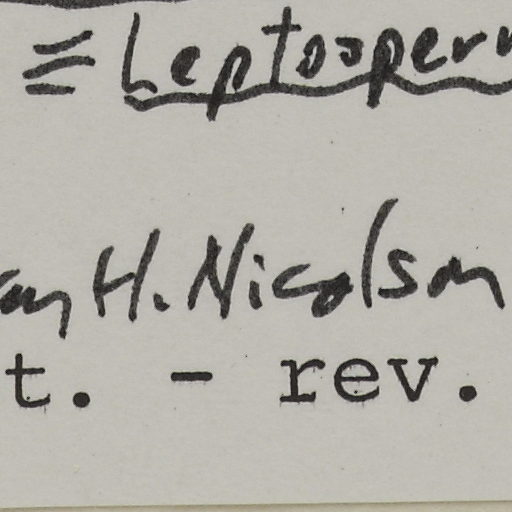 ≡ Leptosperm
H. Nicolson
t. - rev.